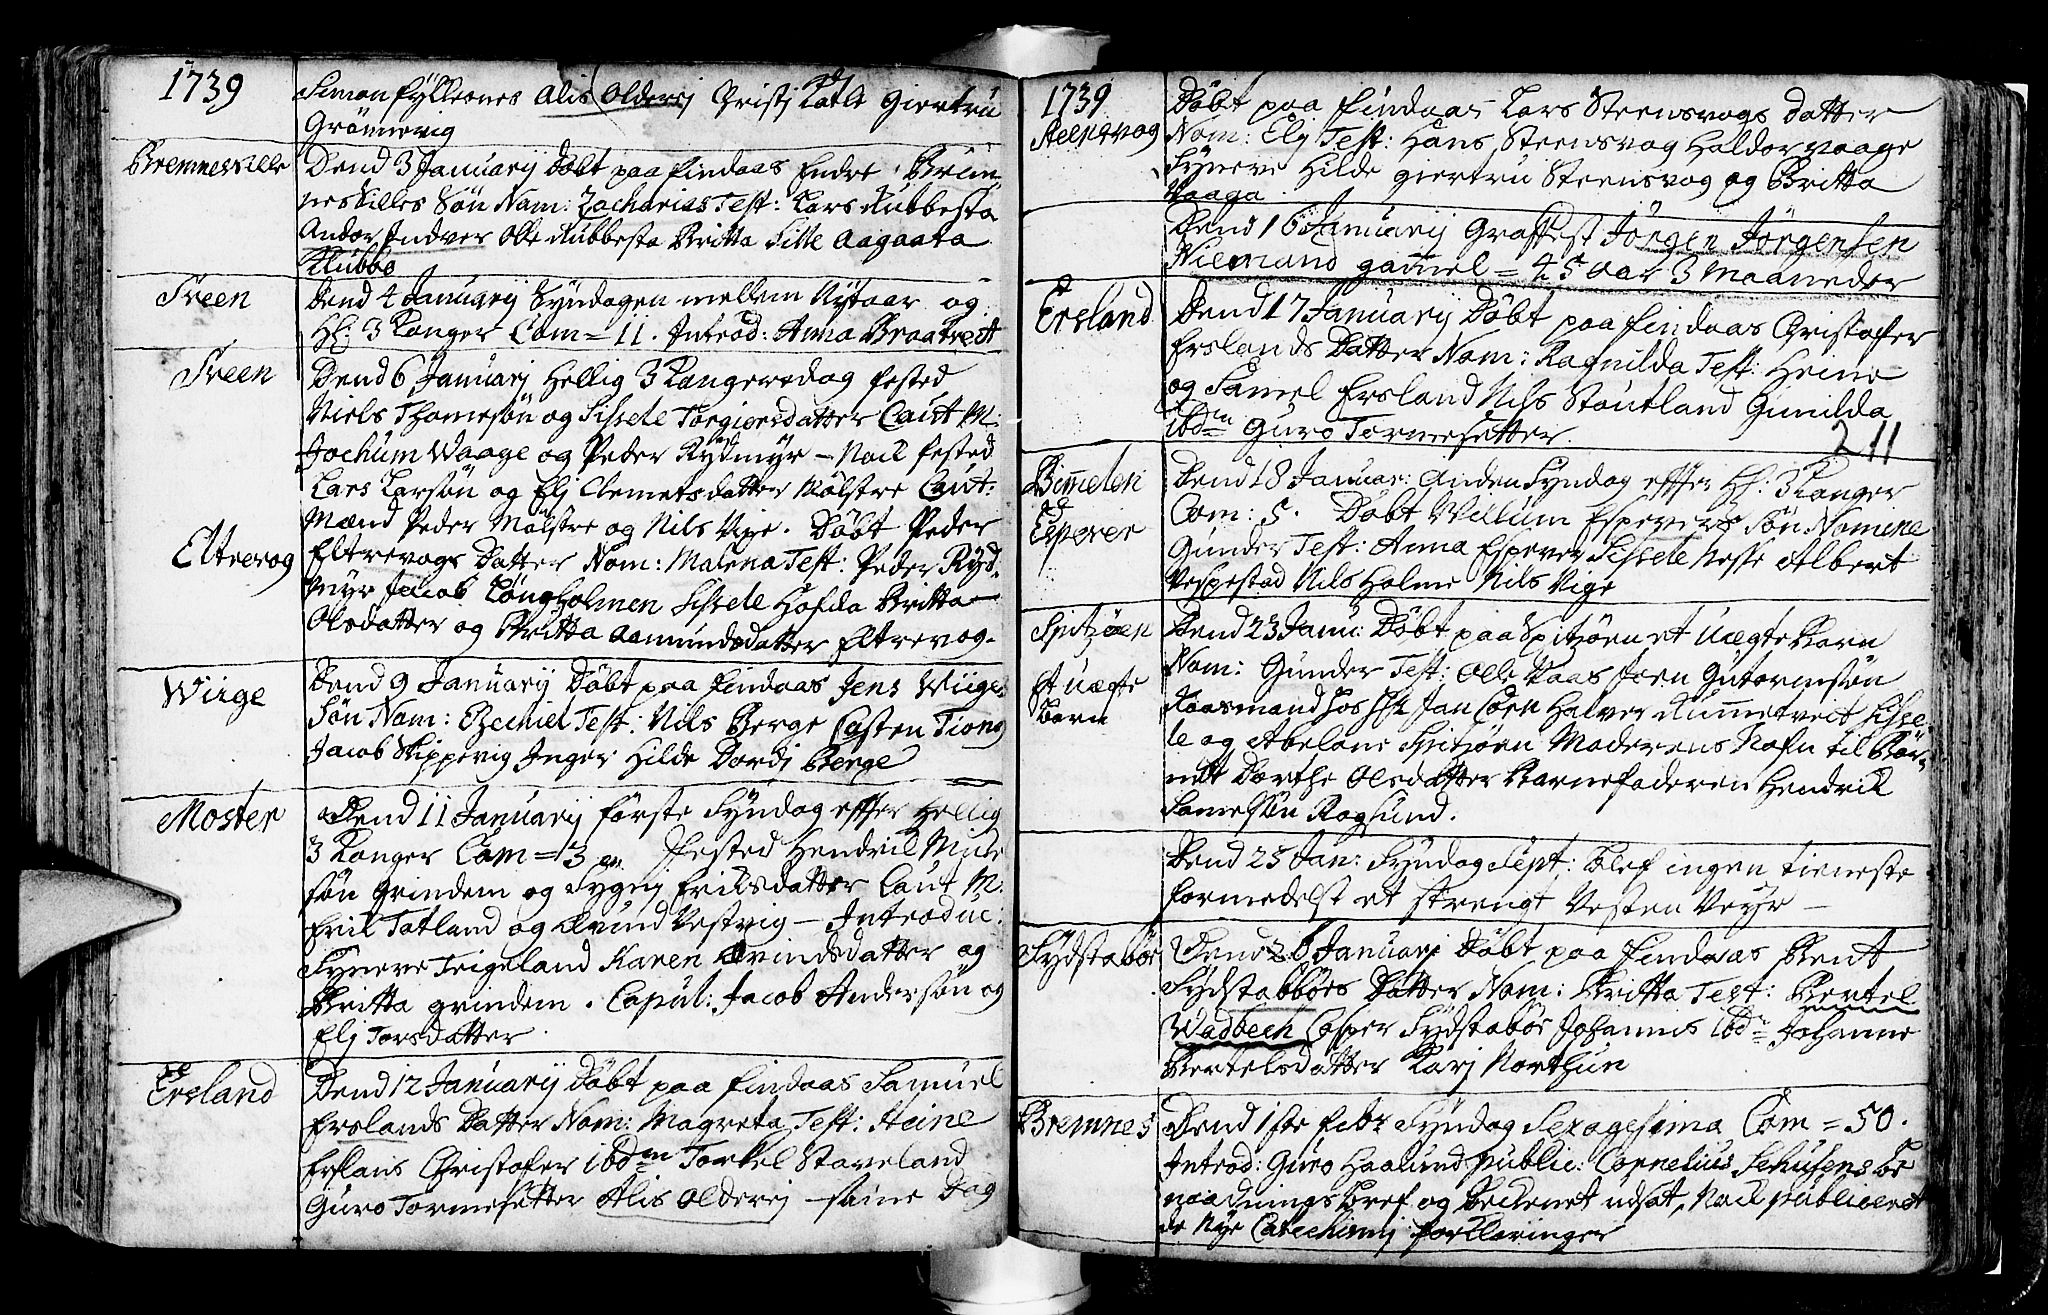 1739
Simon fÿllesnes Alis Olderej Christj Katle Giertru
Grönnevig
Bremneskille
Dend 3 Januarij Döbt paa findaas Endre Brem-
neskilles Sön Nom: Zacharias Test: Lars Rubbesta
Andor Indver Olle Rubbesta Britta Sille Aagaata
Klubbo
Sveen
Dend 4 Januarij Syndagen mellem Nÿtaar og
Hl: 3 Konger Com = 11. Introd: Anna Braatvett
Sveen
Dend 6 Januarj Hellig 3 Kongersdag fested
Niels Thomesön og Sissele Torgiersdatter Caut M:
Jochum Waage og Peder Rÿdmÿr - Nock fested
Lars Larsön og Elj Clemetsdatter Mölstre Caut:
Mænd Peder Mölstre og Nils Vije. Döbt Peder
Eltrevog
Eltrevogs Datter Nom: Malena Test: Peder Rÿd-
mÿr Jacob Longholmen Sissele Hofda Britta
Olsdatter og Britta Aamundsdatter Eltrevog.
Wiige
Dend 9 Januarij Döbt paa findaas Jens Wiiges
Sön Nom: Ezeciel Test: Nils Berge Casten Tiong
Jacob Skippevig Inger Hilde Dordj Berge
Moster
Dend 11 Januarij förste Syndag effter Hellig
3 Konger Com = 13 fested Hendrik
sön Grindem og Sygnj Eriksdatter Caut M:
Erik Totland og Evund Vestvig - Introduc:
Synneve Teigeland Karen Evindsdatter og
Britta grindem. Copul: Jacob Andersön og
Elj Torsdatter.
Ersland
Dend 12 Januarij Döbt paa findaas Samuel
Erslands Datter Nom: Magreta Test: Heine
Erslans Christofer ibdm Torkel Staveland
Guro Tormesetter Alis Olderej - same Dag
1739
Steensvog
Döbt paa findaas Lars Steensvogs Datter
Nom: Elj Test: Hans Steensvog Haldor vaage
Syneve Hilde giertru Steensvog og Britta
Vaage.
Dend 16 Januarij Graffest Jörgen Jörgensen
Niemand gammel = 45 aar 3 Maaneder
Ersland
Dend 17 Januarij Döbt paa findaas Christofer
Erslands Datter Nom: Ragnilda Test: Heine
og Samel Ersland Nils Stoutland Gunilda
ibdm Guro Tormesetter.
211
Bömelen
Espever
Dend 18 Januar: Anden Syndag effter Hl: 3 Konger
Com: 5. Döbt Willum Espevers Sön Nomine
Gunder Test: Anna Espever Sissele Nesse Albert
Vespestad Nils Holme Nils Vige
Spitzöen
Et uægte
Barn
Dend 23 Janu: Döbt paa Spitzöen et Uægte Barn
Nom: Gunder Test: Olle Raas Joen Gutormsön
Jan Coen Halver Rummetveit Sisse-
le og Abelone Spitzöen Moderens Nafn til Bar-
net Dorthe Olsdatter Barnefaderen Hendrik
Samelsön Rogsund.
Dend 25 Jan: Syndag Sept: blef ingen tieneste
formedelst et strengt Vesten Veÿr -
Sydstabör
Dend 26 Januarj Döbt paa findaas Bent
Sydstabbörs Datter Nom: Britta Test: Bertel
Wadbech Casper Sydstabör Johannes ibdm Johanne
Bertelsdatter Karj Northun
Bremnes
Dend 1ste febr Syndag Sexagesima Com = 50.
Introd: Guro Haalund Public: Cornelius Schusens be
naadnings Bref og Beckenet udsat, Nock publiceret
de Nÿe Catechismj forklaringer